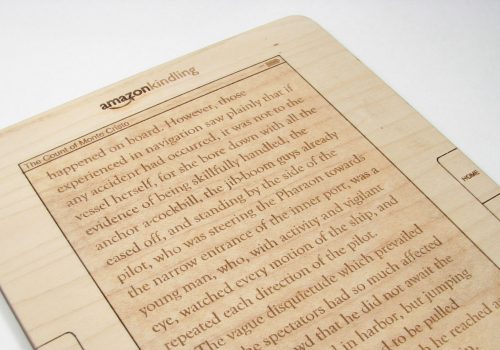 amazonkindling
The Count of Monte Cristo
happened on board. However, those
experienced in navigation saw plainly that if
any accident had occurred, it was not to the
vessel herself, for she bore down with all the
evidence of being skillfully handled, the
anchor a-cockbill, the jib-boom guys already
eased off, and standing by the side of the
pilot, who was steering the Pharaon towards
the narrow entrance of the inner port, was a
young man, who, with activity and vigilant
eye, watched every motion of the ship, and
repeated each direction of the pilot.
The vague disquietude which prevailed
the spectators had so much affected
that he did not await the
in harbor, but jumping
to be pulled
he reached
HOME